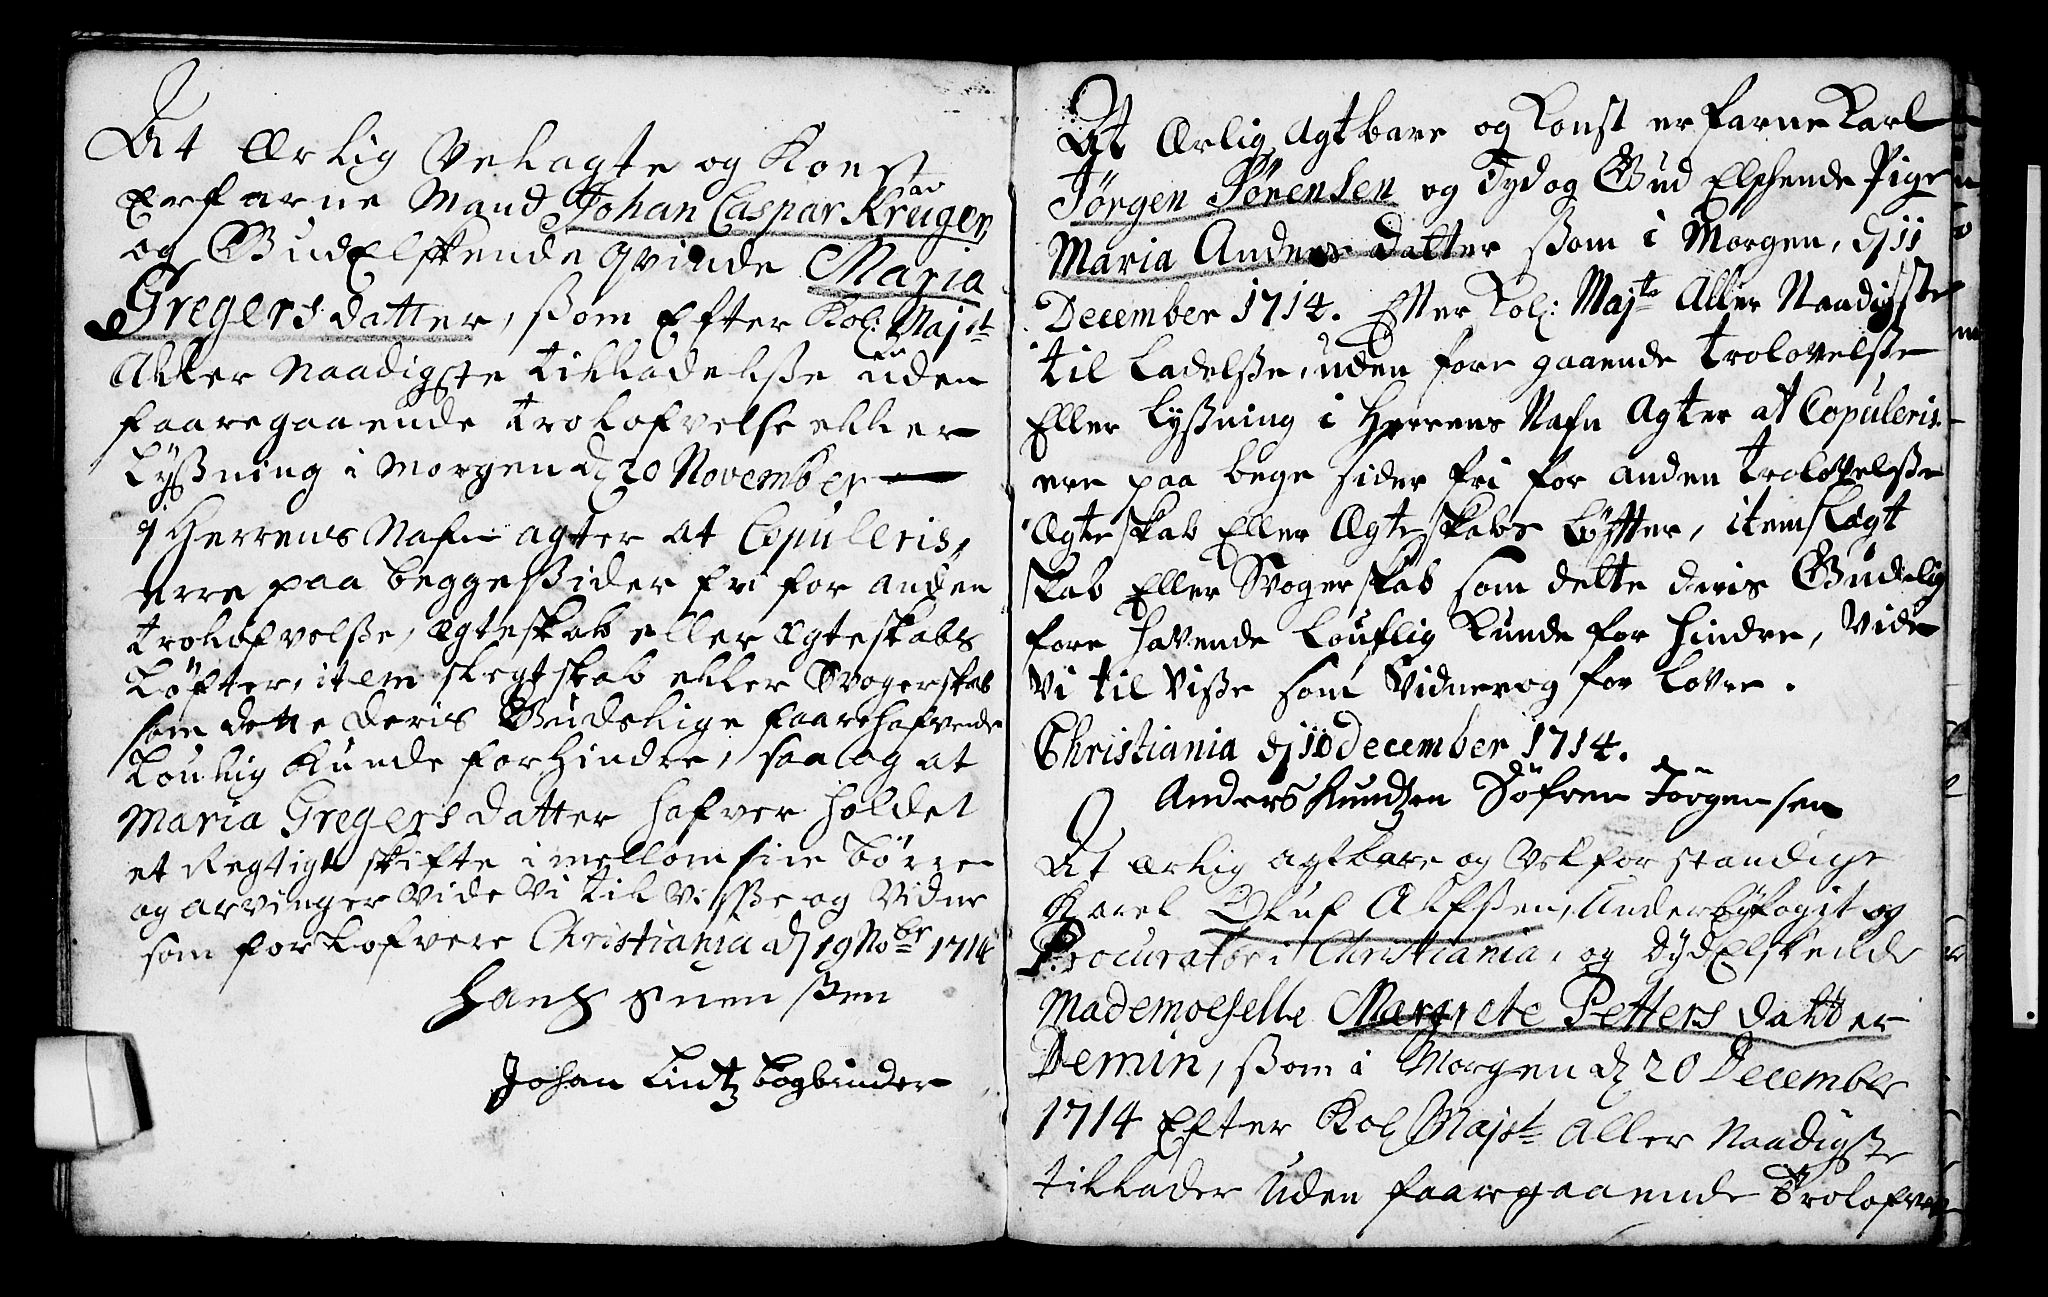 At Ærlig Velagte og Konst
Erfarne Mand Johan Caspar Kruger
og GudElskende qvinde Maria
Gregers datter, ßom Efter Kol: Majst
Aller Naadigste tilladelße uden
faaregaaende trolofvelse eller
Lyßning i Morgen d 20 November
i Herrens Nafn agter at Copuleris,
erre paa beggeßider fri for anden
trolofvelße, Ægteskab eller Ægteskabs
Løfter, item slegtskab eller Svogerskab
som dette deris Gudelige faarehafvende
Loulig Kunde forhindre, saa og at
Maria Gregers datter hafver holdet
et Regtigt skifte imellom sine børn
og arvinger Vide Vi til Visße og Vidne
som forlofvere Christiania d 19 Nobr 1714
Hans Suenßen
Johan Lintz bogbinder
At Ærlig, Agtbare og Konst erfarne Karl
Jörgen Sörensen og Dyd og Gud Elskende Pige
Maria Anders datter ßom i Morgen, d 11
December 1714. Efter Kol: Majts Aller Naadigste
til ladelße, uden fore gaaende trolovelße
Eller Lyßning i Herrens Nafn Agter at Copuleris
ere paa bege sider fri for anden trolovelße
Ægteskab Eller Ægteskabs Löfter, item Slægt
skab Eller Svogerskab som dette deris Gudelig
fore havende Louflig Kunde for hindre, Vide
Vi til Viße som Vidner og for lovere.
Christiania d 10 December 1714.
Anders Kundtzen Söfren Jörgensen
At ærlig agtbare og Velforstandige
Karel Oluf Alfßen, Underbyfogit og
Procurator i Christiania, og DydElskende
Mademoeselle Margrete Petters datter
Demin, ßom i Morgen d 20 December
1714 Efter Kol Majst Aller Naadigste
tillader Uden faaregaaende Trolofvelse